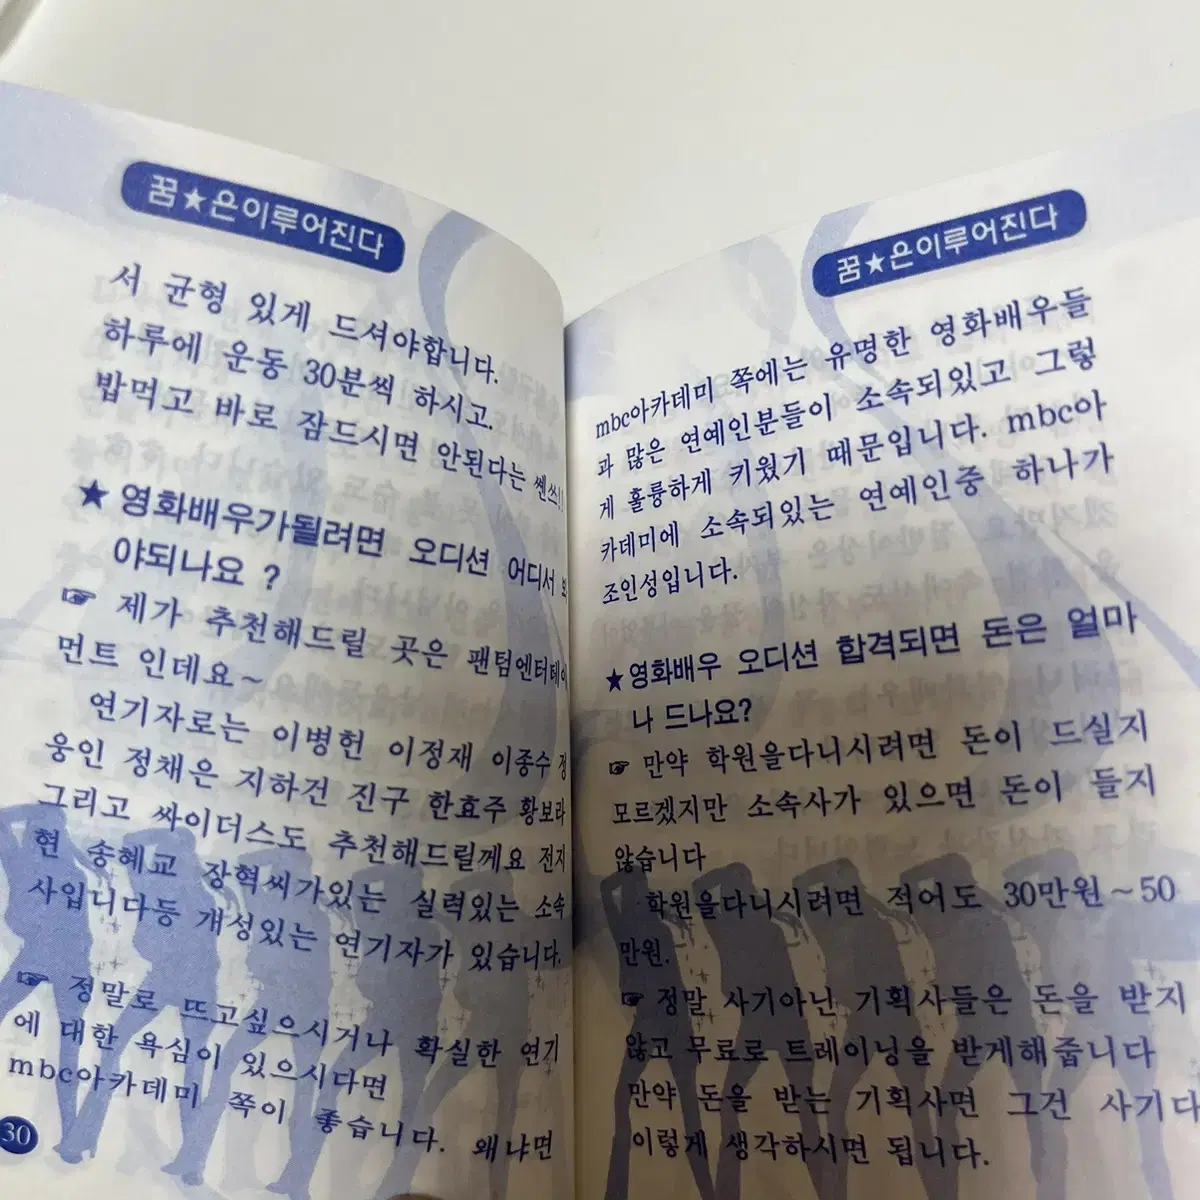 꿈★은이루어진다
서 균형 있게 드셔야합니다.
하루에 운동 30분씩 하시고.
밥먹고 바로 잠드시면 안된다는 쎈쓰!!
★영화배우가될려면 오디션 어디서
야되나요 ?
☞ 제가 추천해드릴 곳은 팬텀엔터테이
먼트 인데요~
연기자로는 이병헌 이정재 이종수 정
웅인 정채은 지하건 진구 한효주 황보라
그리고 싸이더스도 추천해드릴께요 전지
현 송혜교 장혁씨가있는 실력있는 소속
사입니다등 개성있는 연기자가 있습니다.
☞ 정말로 뜨고싶으시거나 확실한 연기
에 대한 욕심이 있으시다면
mbc아카데미 쪽이 좋습니다. 왜냐면
30
꿈★은이루어진다
mbc아카데미 쪽에는 유명한 영화배우들
과 많은 연예인분들이 소속되있고 그렇
게 훌륭하게 키웠기 때문입니다. mbc아
카데미에 소속되있는 연예인중 하나가
조인성입니다.
★영화배우 오디션 합격되면 돈은 얼마
나 드나요?
☞ 만약 학원을다니시려면 돈이 드실지
모르겠지만 소속사가 있으면 돈이 들지
않습니다
학원을다니시려면 적어도 30만원~50
만원.
☞ 정말 사기아닌 기획사들은 돈을 받지
않고 무료로 트레이닝을 받게해줍니다
만약 돈을 받는 기획사면 그건 사기다
이렇게 생각하시면 됩니다.